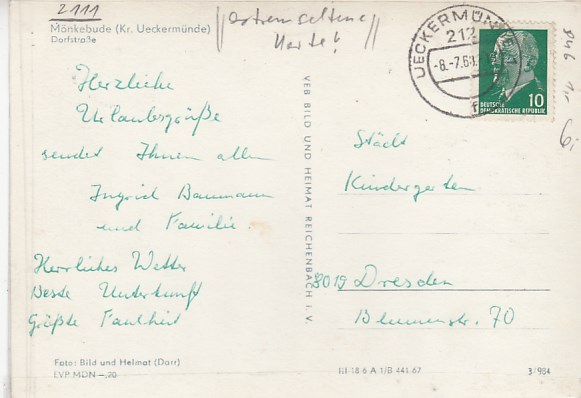 2111
Mönkebude (Kr. Ueckermünde)
Dorfstraße
extrem seltene
Karte!
UECKERMÜNDE
212
-8.-7.6
DEUTSCHE
DEMOKRATISCHE REPUBLIK
10
Herzliche
Urlaubsgrüße
sendet Ihnen allen
Ingrid Baumann
und Familie.
Herrliches Wetter
Beste Unterkunft
Größte Faulheit
VEB BILD UND HEIMAT REICHENBACH i. V.
Städt
Kindergarten
8019 Dresden
Blumenstr. 70
Foto: Bild und Heimat (Darr)
EVP MDN –,20
III 18 6 A 1/B 441 67
3/984